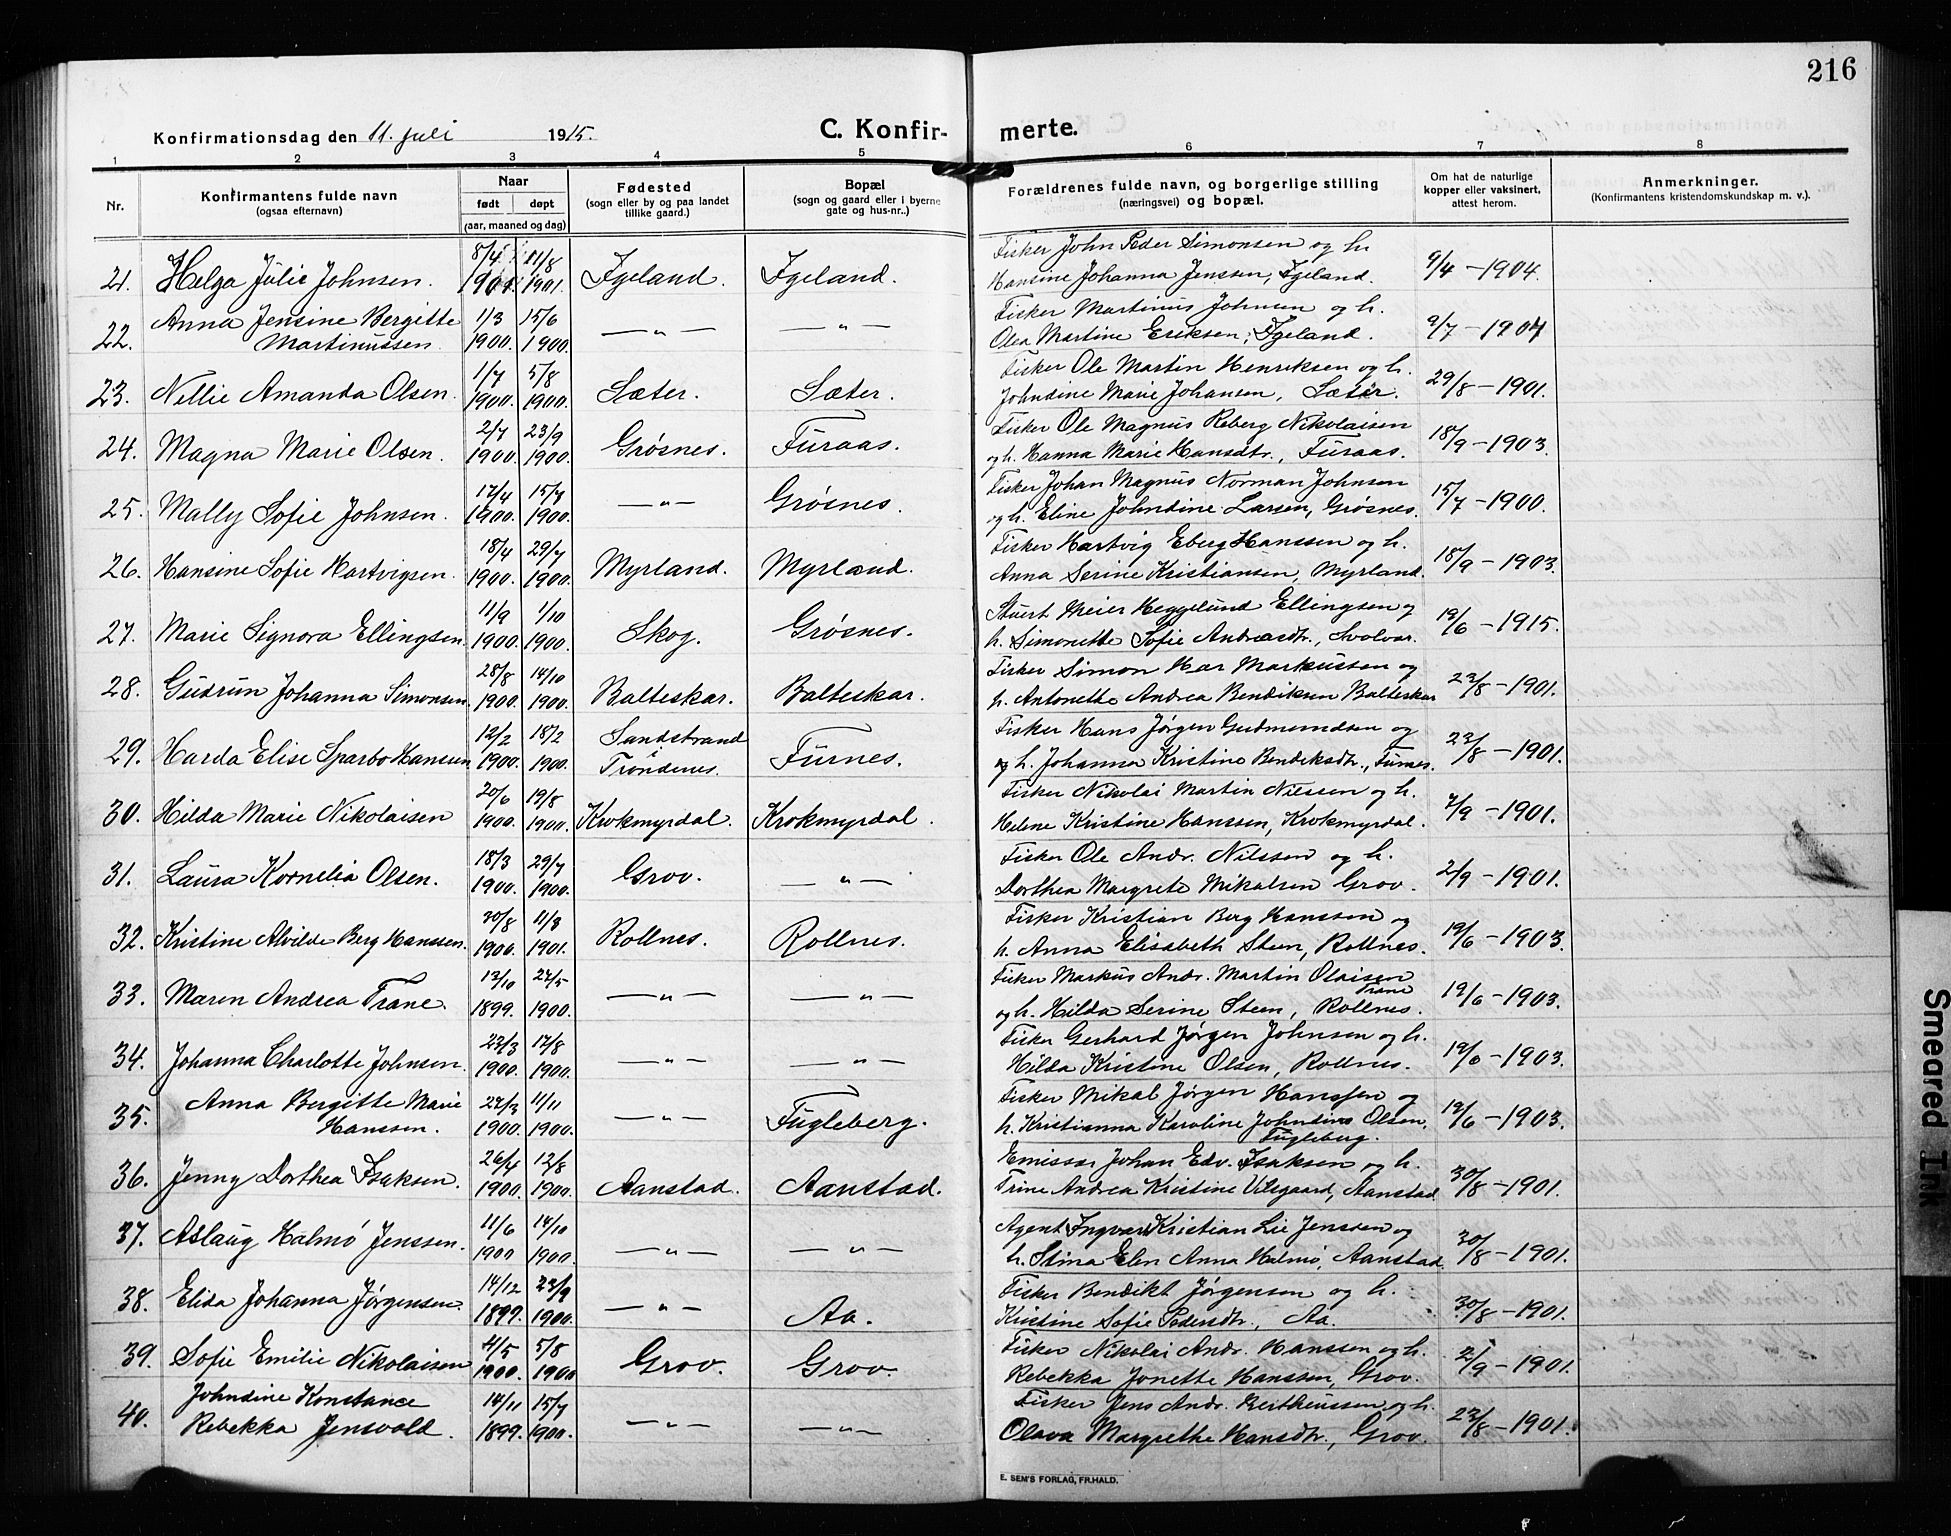 216
Konfirmationsdag den 11. juli 1915.
C. Konfirmerte.
1 2 3 4 5 6 7 8
Nr.
Konfirmantens fulde navn
(ogsaa efternavn)
Naar
født døpt
(aar, maaned og dag)
Fødested
(sogn eller by og paa landet
tillike gaard.)
Bopæl
(sogn og gaard eller i byerne
gate og hus-nr..)
Forældrenes fulde navn, og borgerlige stilling
(næringsvei) og bopæl.
Om hat de naturlige
kopper eller vaksinert,
attest herom.
Anmerkninger.
(Konfirmantens kristendomskundskap m. v.).
21. Helga Julie Johnsen. 8/4 1901. 11/8 1901. Igeland. Igeland. Fisker John Peder Simonsen og h.
Hansine Johanna Jensen, Igeland. 9/4 - 1904.
22. Anna Jensine Bergitte
Martinussen. 1/3 1900. 15/6 1900. —"— —"— Fisker Martinus Johnsen og h.
Olea Martine Eriksen, Igeland. 9/7 - 1904
23. Nellie Amanda Olsen. 1/7 1900. 5/8 1900. Sæter. Sæter. Fisker Ole Martin Henriksen og h.
Johndine Marie Johansen, Sæter. 29/8 - 1901.
24. Magna Marie Olsen. 2/7 1900. 23/9 1900. Grøsnes. Furaas. Fisker Ole Magnus Reberg Nikolaisen
og h. Hanna Marie Hansdtr., Furaas. 18/9 - 1903.
25. Mally Sofie Johnsen. 17/4 1900. 15/7 1900. —"— Grøsnes. Fisker Johan Magnus Norman Johnsen
og h. Eline Johndine Larsen, Grøsnes. 15/7 - 1900.
26. Hansine Sofie Hartvigsen. 18/4 1900. 29/7 1900. Myrland. Myrland. Fisker Hartvig Eberg Hanssen og h.
Anna Serine Kristiansen, Myrland. 18/9 - 1903.
27. Marie Signora Ellingsen. 11/9 1900. 1/10 1900. Skog. Grøsnes. Stuert Meier Heggelund Ellingsen og
h. Simonette Sofie Andreasdtr., Svolvær. 19/6 - 1915.
28. Gudrun Johanna Simonsen. 28/8 1900. 14/10 1900. Balteskar. Balteskar. Fisker Simon Har Markussen og
h. Antonette Andrea Bendiksen Balteskar 23/8 - 1901.
29. Harda Elise Sparbo Hansen 12/2 1900. 18/2 1900. Sandstrand
Trondenes. Furnes. Fisker Hans Jørgen Gudmundsen og
og h. Johanna Kristine Bendiksdtr., Furnes. 23/8 - 1901.
30. Hilda Marie Nikolaisen 20/6 1900. 19/8 1900. Krokmyrdal. Krokmyrdal. Fisker Nikolai Martin Nilssen og h.
Helene Kristine Hanssen, Krokmyrdal. 7/9 - 1901.
31. Laura Kornelia Olsen. 18/3 1900. 29/7 1900. Grov. —"— Fisker Ole Andr. Nilssen og h.
Dorthea Margrete Mikalsen Grov. 2/9 - 1901.
32. Kristine Alvilde Berg Hanssen. 30/8 1900. 11/8 1901. Rollnes. Rollnes. Fisker Kristian Berg Hanssen og
h. Anna Elisabeth Steen, Rollnes. 19/6 - 1903.
33. Maren Andrea Trane. 13/10 1899. 27/5 1900. —"— —"— Fisker Markus Andr. Martin Olaisen
Trane
og h. Hilda Serine Steen, Rollnes. 19/6 - 1903.
34. Johanna Charlotte Johnsen. 23/3 1900. 12/8 1900. —"— —"— Fisker Gerhard Jørgen Johnsen og h.
Hilda Kristine Olsen, Rollnes. 19/6 - 1903.
35. Anna Bergitte Marie
Hanssen. 27/3 1900. 11/11 1900. —"— Fugleberg. Fisker Mikal Jørgen Hanssen og
h. Kristianna Karoline Johndine Olsen,
Fugleberg. 19/6 - 1903.
36. Jenny Dorthea Isaksen. 26/4 1900. 12/8 1900. Aanstad. Aanstad. Emissær Johan Edv. Isaksen og h.
Trine Andrea Kristine Vilsgaard, Aanstad 30/8 - 1901.
37. Aslaug Halmø Jenssen. 11/6 1900 14/10 1900. —"— —"— Agent Ingvar Kristian Lie Jenssen og
h. Stina Elen Anna Halmø, Aanstad 30/8 - 1901.
38. Elida Johanna Jørgensen 14/12 1899. 23/9 1900. —"— Aa. Fisker Bendikt Jørgensen og h.
Kristine Sofie Pedersdtr., Aa. 30/8 - 1901.
39. Sofie Emilie Nikolaisen 4/5 1900. 5/8 1900 Grov. Grov. Fisker Nikolai Andr. Hanssen og h.
Rebekka Jonette Hanssen, Grov. 2/9 - 1901.
40. Johndine Konstance
Rebekka Jensvold. 14/11 1899. 15/7 1900. —"— —"— Fisker Jens Andr. Bertheussen og h.
Olava Margrethe Hansdtr., Grov. 23/8 - 1901.
E. SEM'S FORLAG, FR.HALD.
Smeared Ink